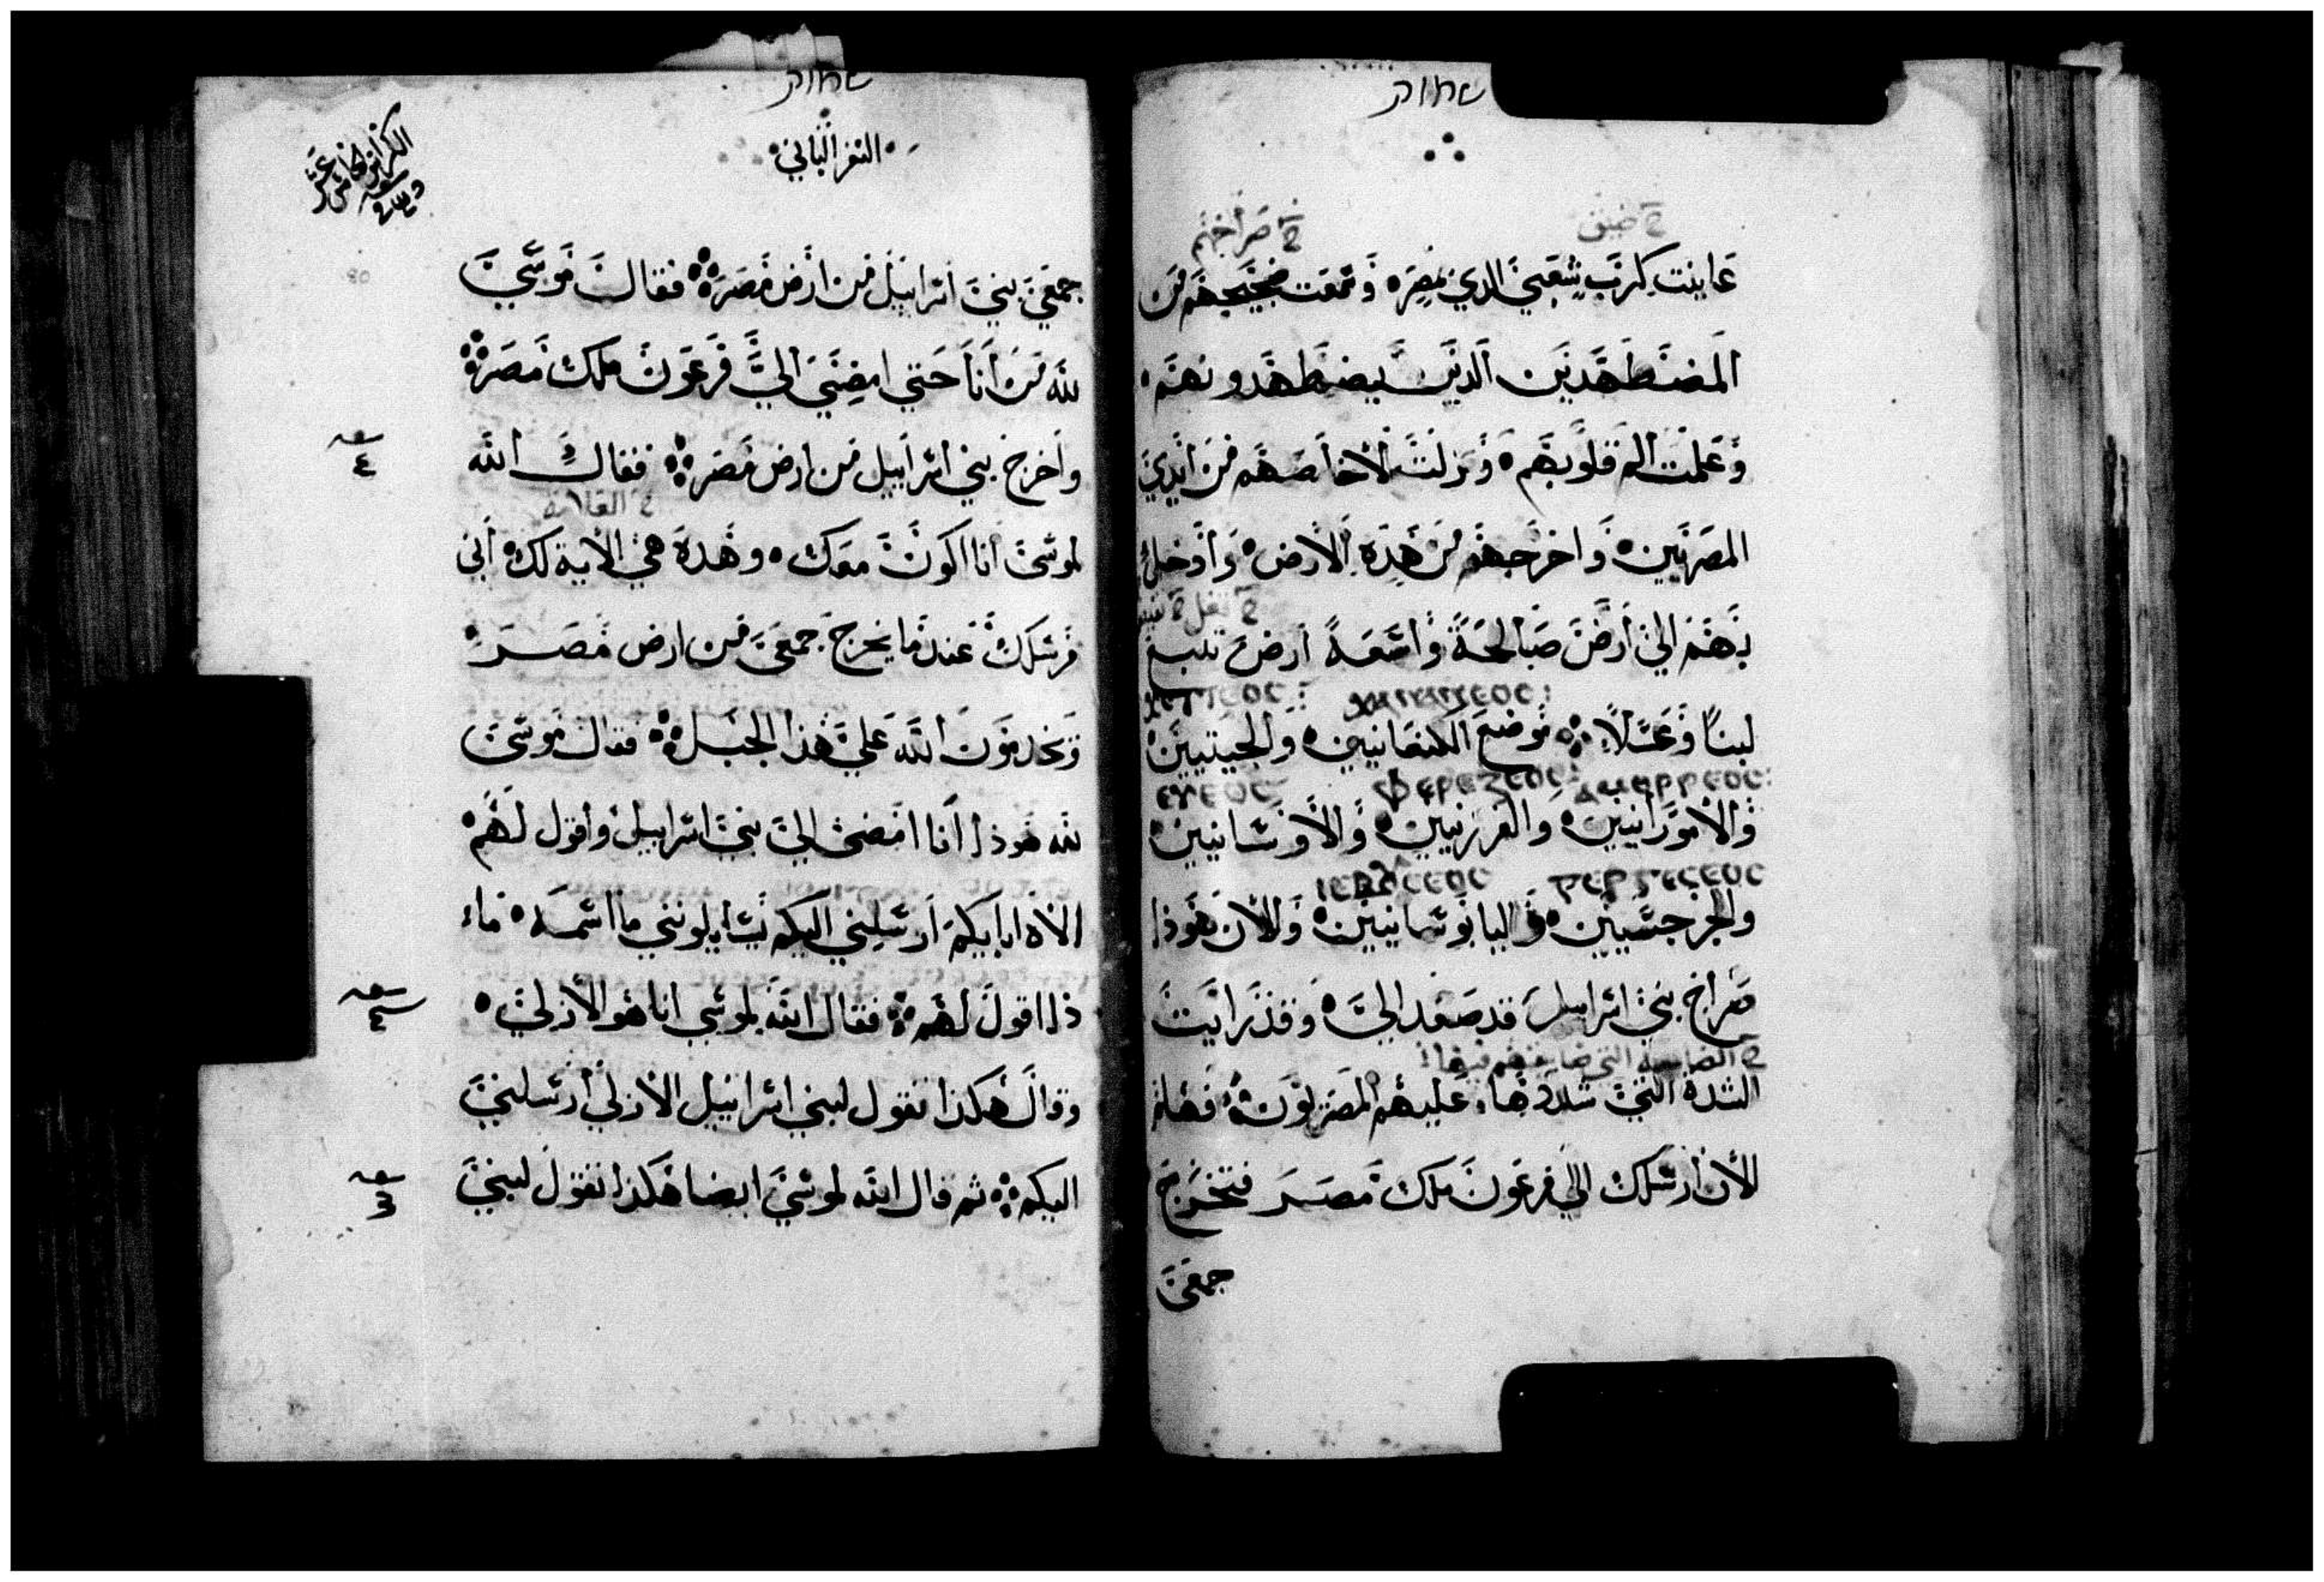 שמות
ضيق
صراخهم
عاينت كرب شعبي الدي بمصره وسمعت ضجيجهم من
المضطهدين الدين يضطهدونهم
وعلمت الم قلوبهم ونزلت لأخلصهم من ايدي
المصريين واخرجهم من هده الأرض وأدخل
بهم الي أرض صالحة واسعة أرض تنبع
لبنًا وعسلاً موضع الكنعانيين والحيتيين
والأمورانيين والفرزيين والأوسانيين
والجرجسيين واليابوسانيين والأن هوذا
صراخ بني اسرابيل قد صعد الي وقد رايت
الشدة التي شددها عليهم المصريون فهلم
الأن ارسلك الي فرعون ملك مصر فتخرج
جمعي
שמות
السفر الثاني
جمعي بني اسرابيل من ارض مصر فقال موسي
لله من أنا حتي امضي الي فرعون ملك مصر
واخرج بني اسرابيل من ارض مصر فقال الله
لموسي انا اكون معك وهده هي الأية لك أني
مرسلك عندما يخرج جمعي من ارض مصر
وتخدمون الله علي هذا الجبل فقال موسي
لله هوذا أنا امضي الي بني اسرابيل وأقول لهم
الاه ابايكم أرسلني اليكم يسايلونني ما اسمه ماء
ذا اقول لهم فقال الله لموسي انا هو الأزلي
وقال هكذا تقول لبني اسراييل الأزلي أرسلني
اليكم ثم قال الله لموسي ايضا هكذا تقول لبني